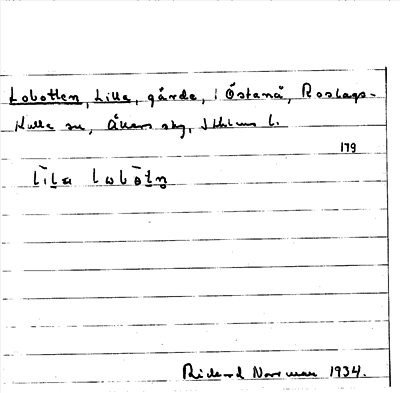 Lobotten, Lilla, gärde, i Östanå, Roslags-
Kulla sn, Åkers skg, Sthlms l.
179
Rickard Norrman 1934.